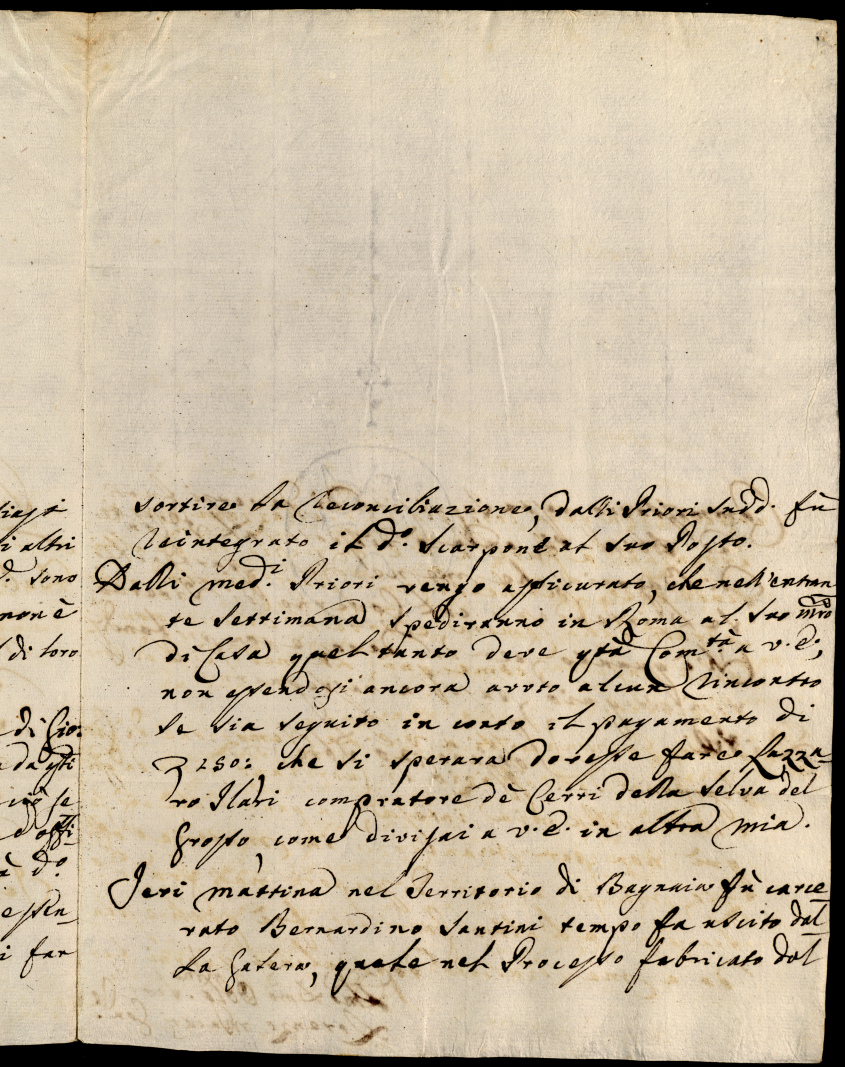 sortire la Reconciliazione, dalli Priori sudd. fù
reintegrato il d.º Scarpone al suo Posto.
Dalli med.i Priori vengo assicurato, che nell'entran-
te settimana spediranno in Roma al suo mro
di Casa quel tanto deve qta Com.tà a v.e.,
non essendosi ancora avuto alcun rincontro
se sia seguito in conto il pagamento di
250: che si sperava dovesse fare Lazza-
ro Ilari compratore dè Cerri della Selva del
Grosso, come divisai a v.e. in altra mia.
Jeri mattina nel Territorio di Bagnaia fù carce-
rato Bernardino Santini tempo fa uscito dal-
la Galera, quale nel Processo fabricato dal
i altri
sono
non è
di loro
di Gio:
se
d.º
i far